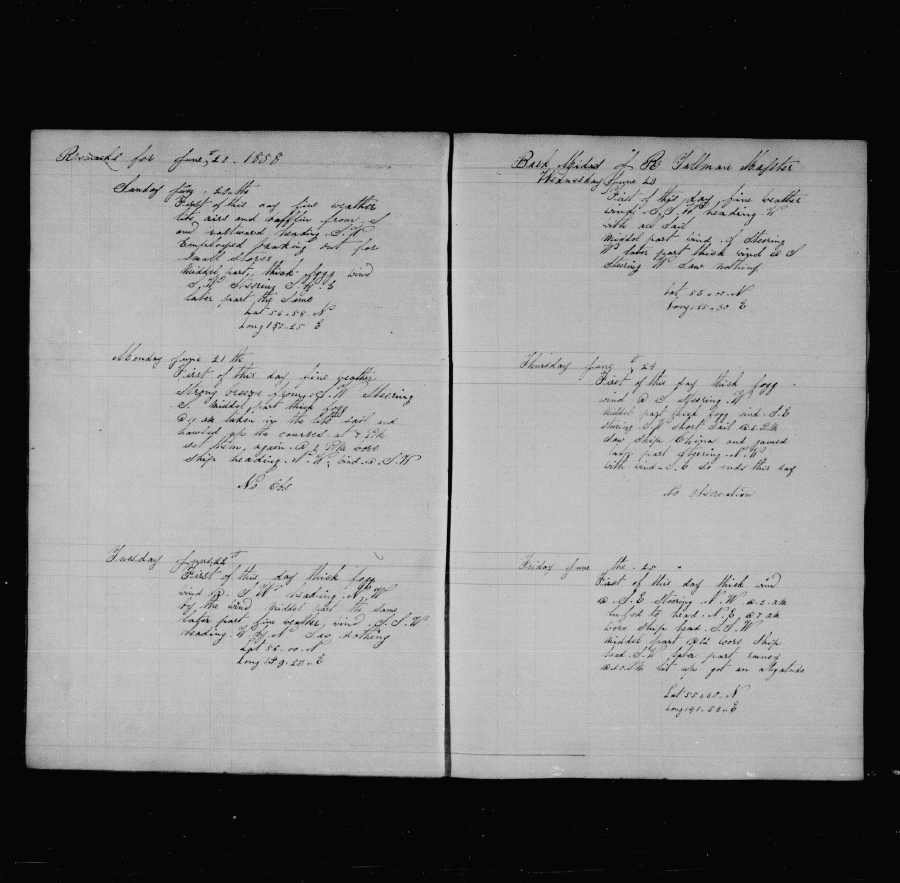 Remarks for June 20. 1858
Sunday June. 20 th
First of this day fine weather
lite aires and bafflin from. S
and eastward heading. S.W
Employed braking out for
Small Stores
Middel part thick fogg wind
S.W Steering S.W. E
later part the Same
Lat 56-58. N
Long 152-25 E
Monday June 21 th
First of this day fine weather
Strong breeze from. S.W Steering
S. Middel part thick fogg
@ 10 AM taken in the lite sail and
hawled up the courses. at 7 P.M
set them, again. @ 2 P.M wore
Ship heading. N.W. wind. @. S.W
No Obs
Tuesday June 22th
First of this day thick fogg
wind. @. S W heading N.W
by the wind Middel part the same
later part fine weather, wind. S.S.W
heading. W by N Saw nothing
Lat 56. 00. N
Long 149. 23. E
Bark Midas of B Tallman Master
Wednesday June 23
First of this day fine weather
wind. S.S.W heading W
with all Sail
Middel part wind. S Steering
W later part thick wind @ S
Steering W Saw nothing
Lat 56-00. N
Long. 30 E
Thursday June 24
First of this day thick fogg
wind @ S Steering. W
Middel part thick fogg wind. S.E
Steering S.W Short Sail @ 6 P.M
Saw Ship China and gamed
later part Steering. N.W
with wind. S.E So ends this day
No Observation
Friday June the. 25
First of this day thick wind
@. S.E Steering N.W. @. 3. AM
lufed to head. N.E, @ 7 AM
wore Ship head. S.S.W
Middel part @ 12 wore Ship
head. S.W later part rainey
lit up got an
Lat 55. 30. N
Long 58. E